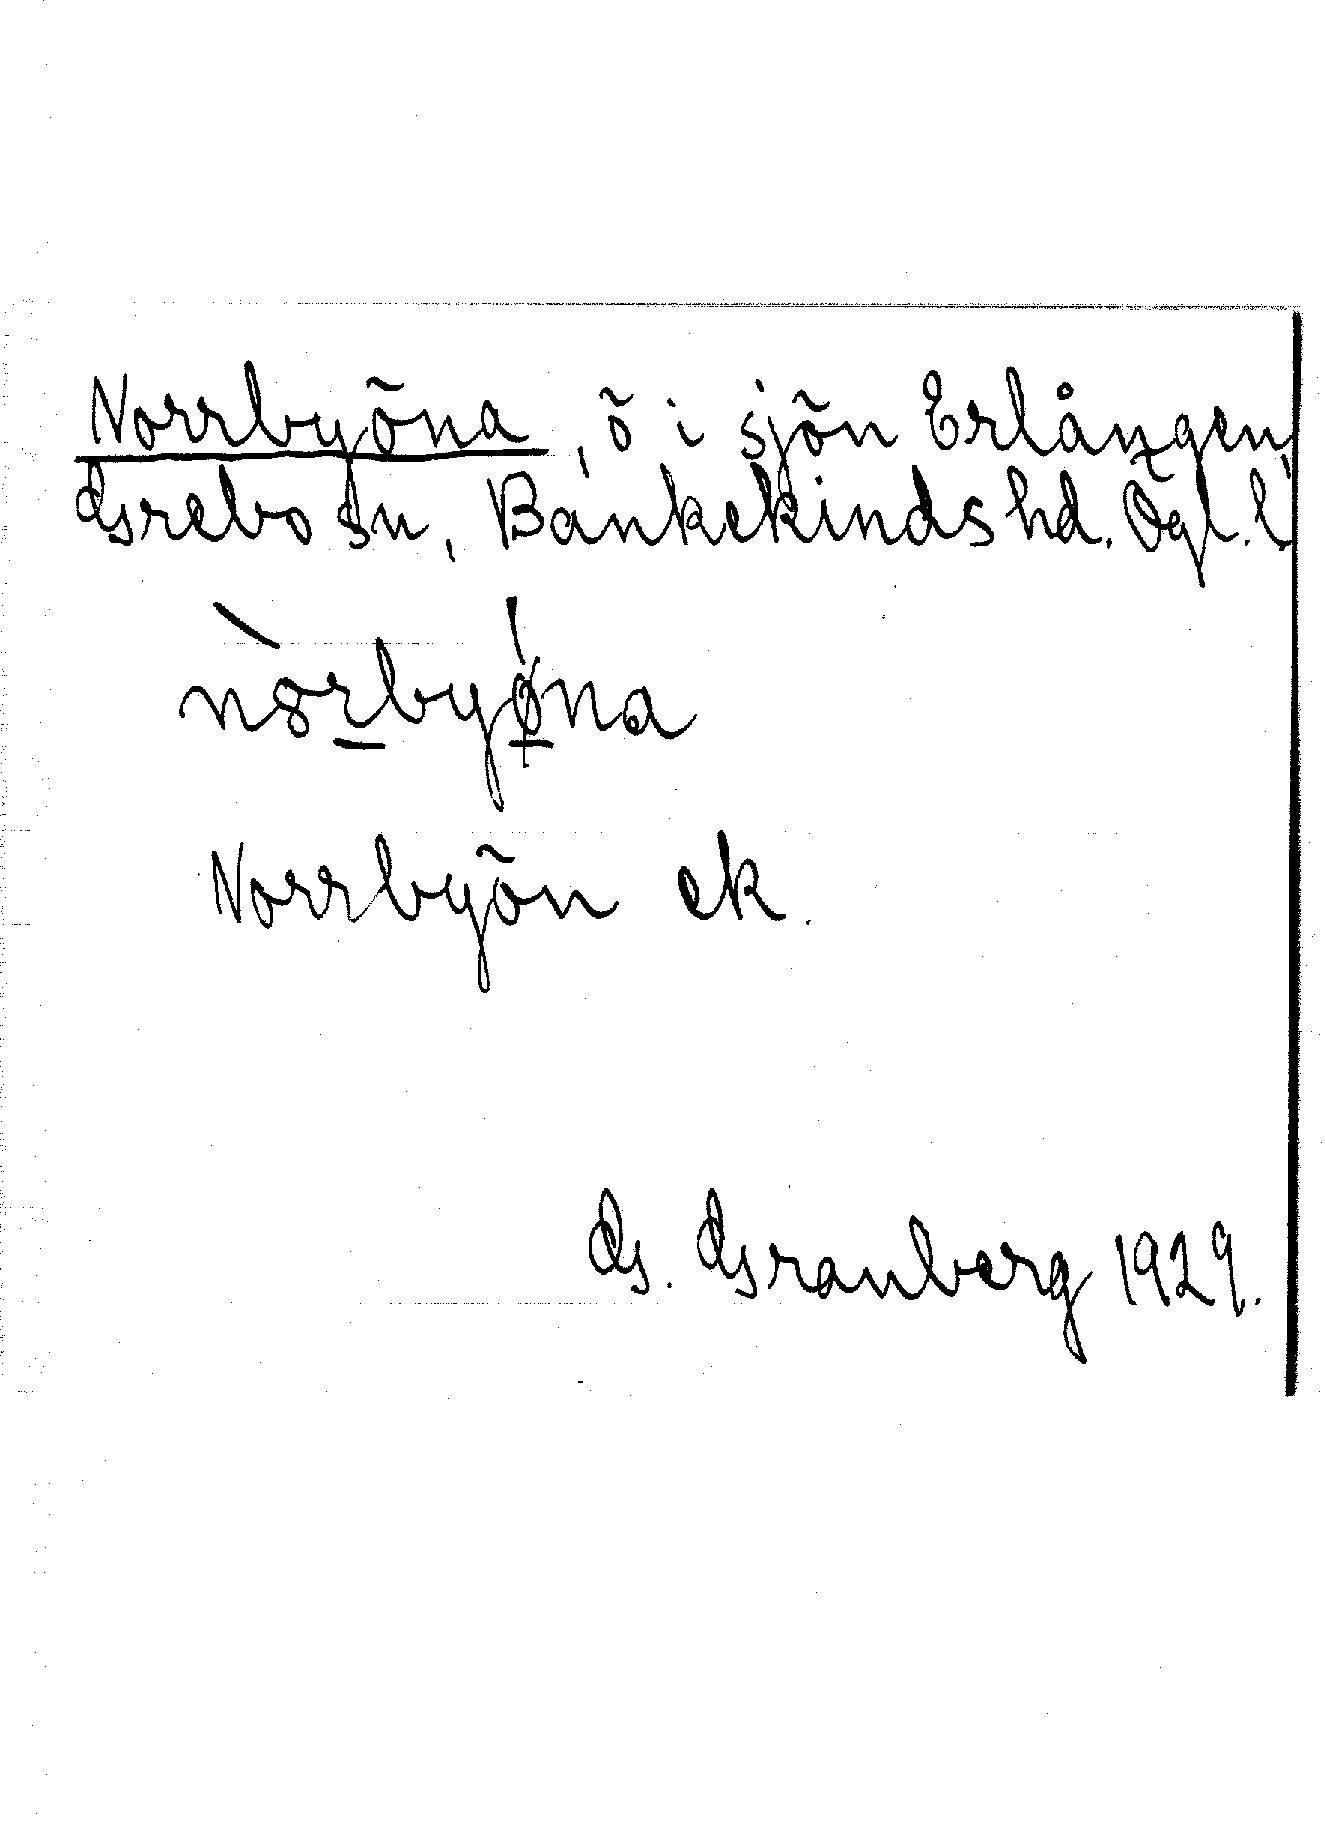 Norrbyöna, ö i sjön Erlången,
Grebo sn, Bankekinds hd. Ögl. l.
nòrbyǿna
Norrbyön ek.
G. Granberg 1929.